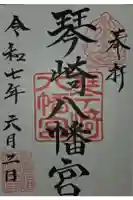 奉拝
琴崎八幡宮
令和七年六月二日